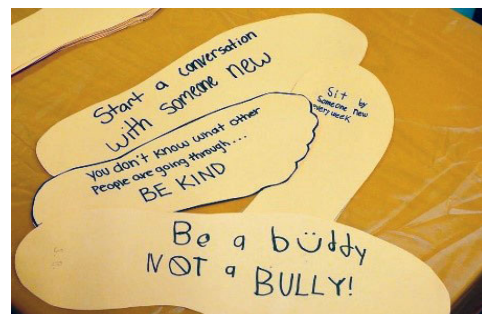 Start a conversation
with someone new
Sit by
someone new
every week
you don't know what other
People are going through...
BE KIND
Be a büddy
NOT a BULLY!